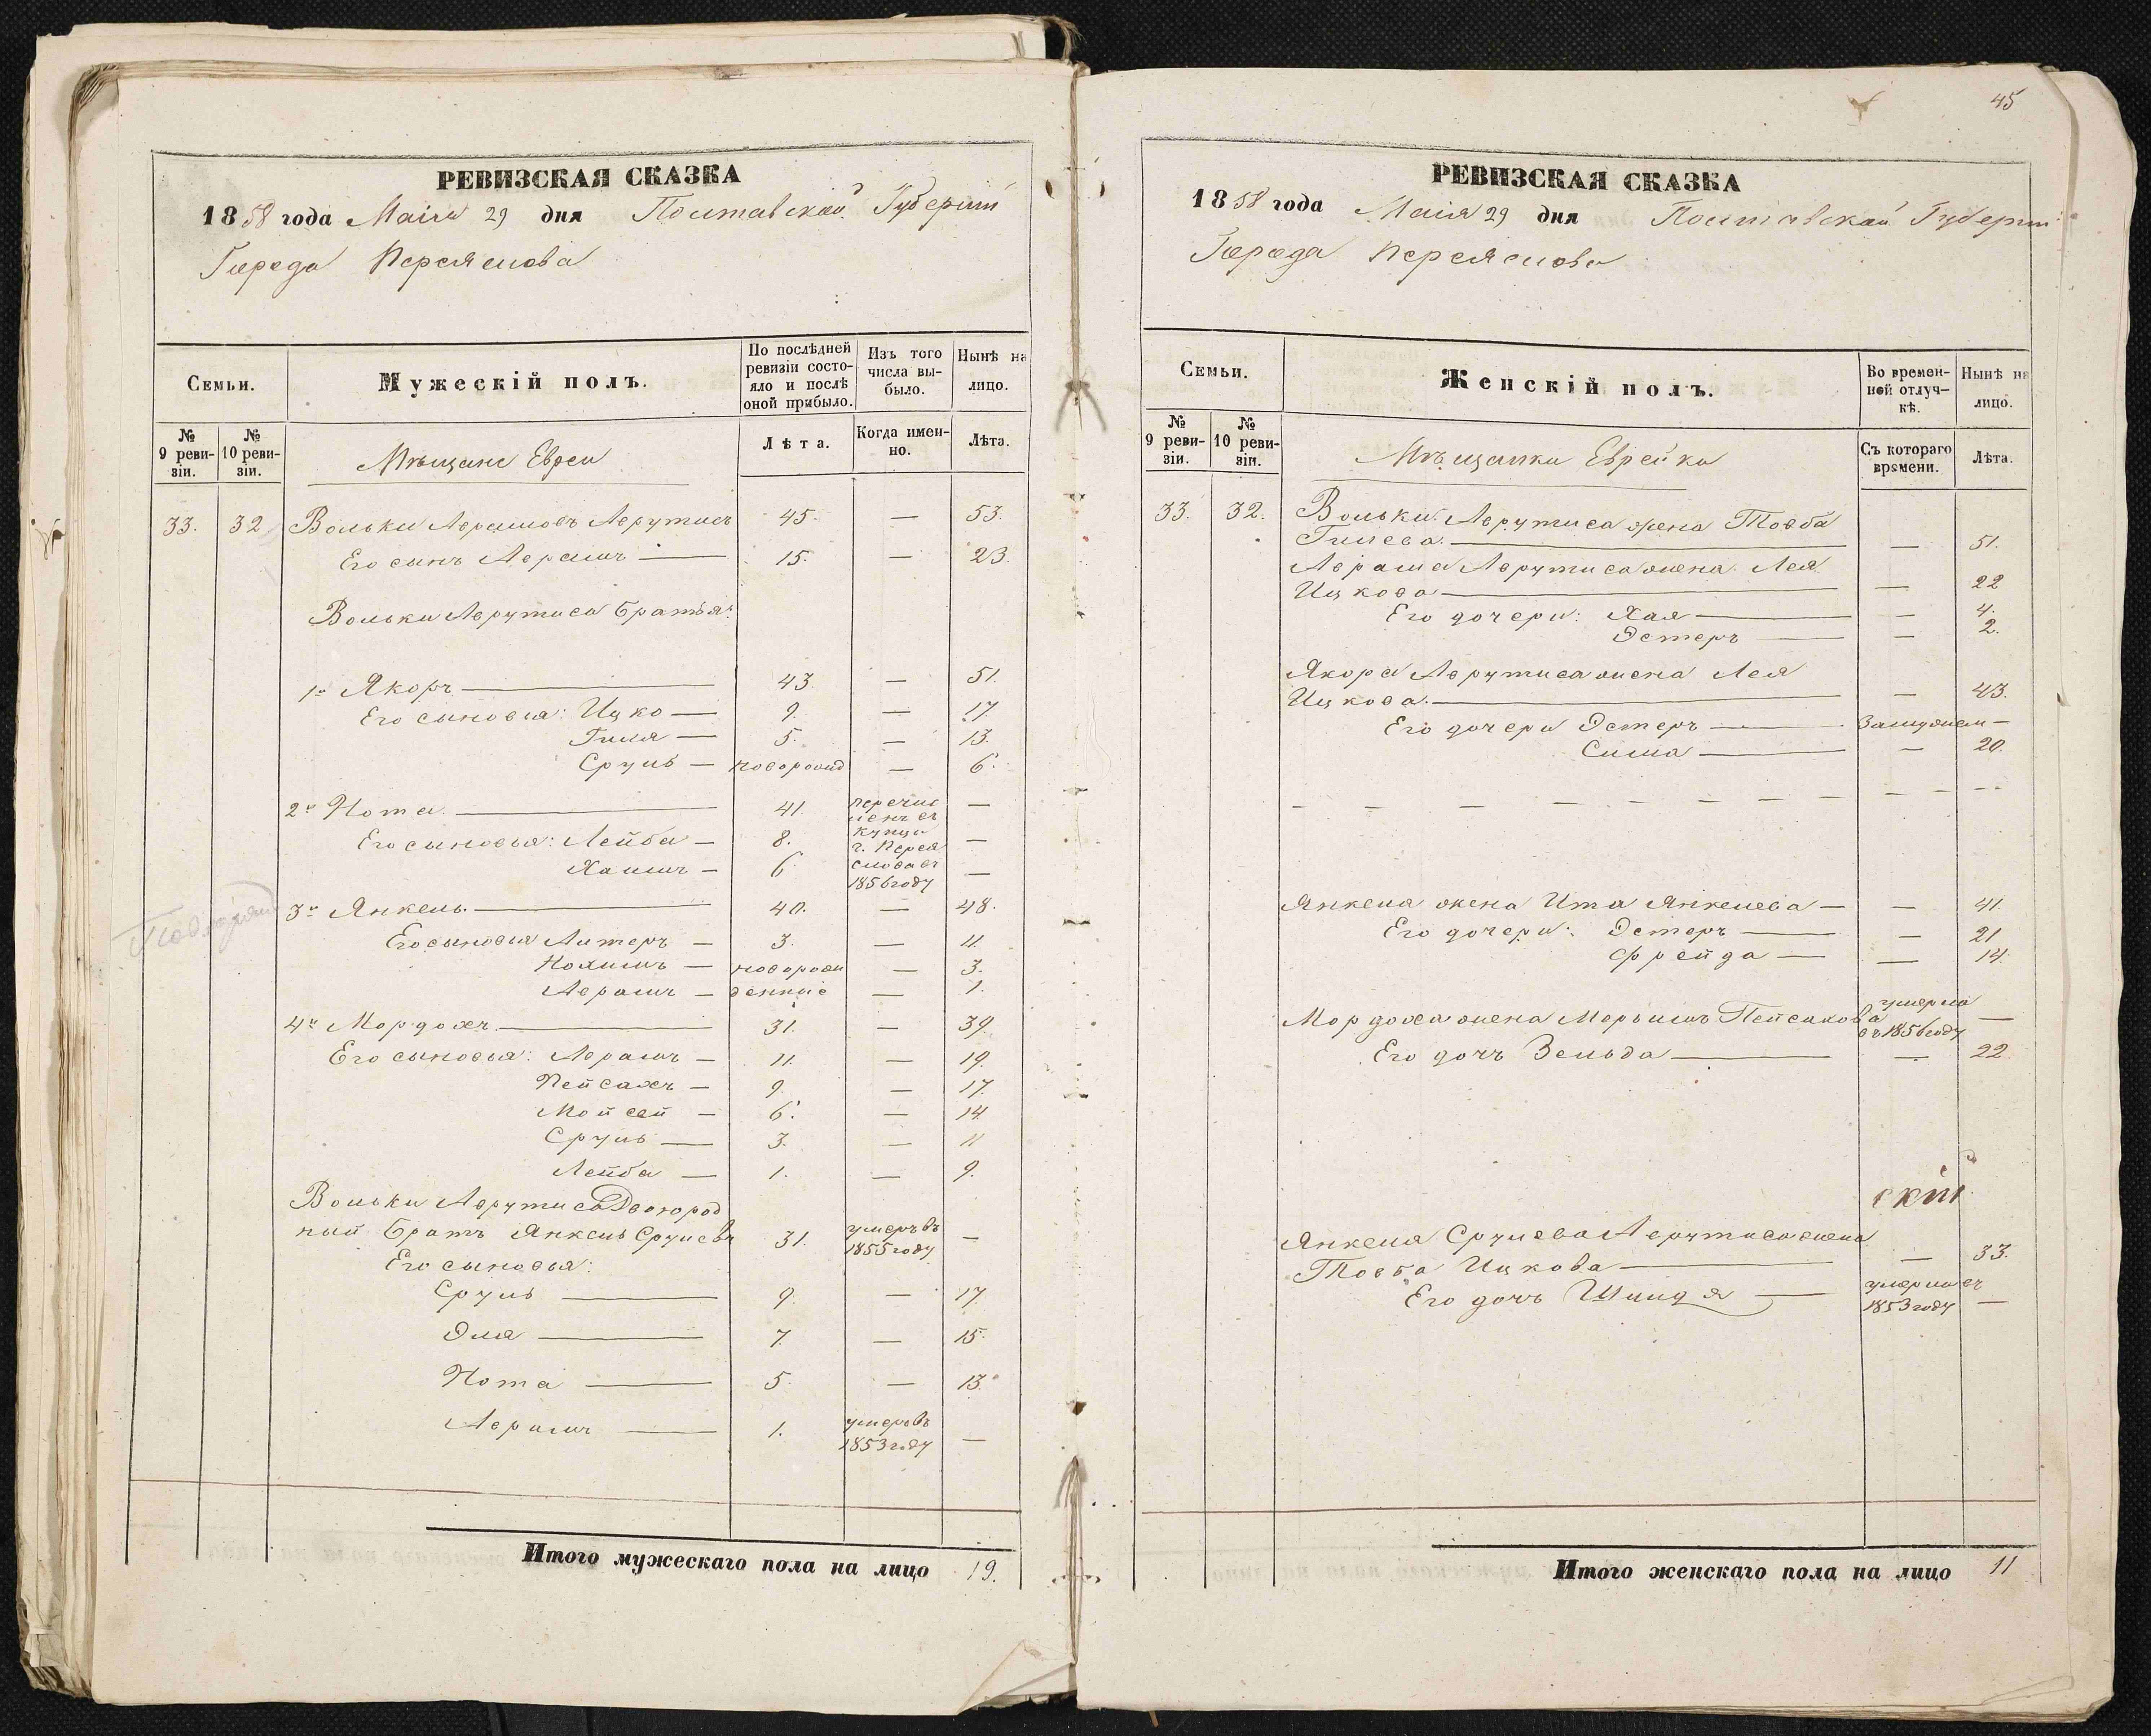 РЕВИЗСКАЯ СКАЗКА
1858 года Маія 29 дня Полтавской Губерніи
Города Переяслова
Семьи.
Мужескій полъ.
По послѣдней ревизіи состояло и послѣ оной прибыло.
Изъ того числа выбыло.
Нынѣ на лицо.
№ 9 ревизіи.
№ 10 ревизіи.
Мѣщане Евреи
Лѣта.
Когда именно.
Лѣта.
33. 32 Вольки Аврамовъ Аврутисъ 45. — 53.
Его сынъ Аврамъ — 15. — 23.
Вольки Аврутиса братья:
1й Якоръ — 43 — 51.
Его сыновья: Ицко — 9. — 17.
Гиля — 5. — 13.
Сруль — новорожд — 6.
2й Нота — 41. перечис —
ленъ въ
Его сыновья: Лейба — 8. купцы —
г. Перея
Хаимъ — 6 слова въ —
1856 году
3й Янкель — 40. — 48.
Его сыновья Литеръ — 3. — 11.
Нохимъ — новорож — 3.
Аврамъ — денные — 1.
4й Мордохъ — 31. — 39.
Его сыновья: Аврамъ — 11. — 19.
Пейсахъ — 9. — 17.
Мойсей — 6. — 14.
Сруль — 3. — 11
Лейба — 1. — 9.
Вольки Аврутиса Двоюрод
ный братъ Янкель Срулевъ 31. умеръ въ 1855 году —
Его сыновья:
Сруль — 9. — 17.
Эля — 7. — 15.
Нота — 5. — 13.
Аврамъ — 1. умеръ въ 1853 году —
Итого мужескаго пола на лицо 19.
45
РЕВИЗСКАЯ СКАЗКА
1858 года Маія 29 дня Полтавской Губерніи
Города Переяслова
Семьи.
Женскій полъ.
Во временной отлучкѣ.
Нынѣ на лицо.
№ 9 ревизіи.
№ 10 ревизіи.
Мѣщанки Еврейки
Съ котораго времени.
Лѣта.
33. 32. Вольки Аврутиса жена Товба
Гилева. — — 51.
Аврама Аврутиса жена Лея
Ицкова — — 22
Его дочери: Хая — — 4.
Эстеръ — — 2.
Якора Аврутиса жена Лея
Ицкова. — — 43.
Его дочери Эстеръ — Замужем —
Сима — — 20.
Янкеля жена Ита Янкелева — — 41
Его дочери: Эстеръ — — 21
Фрейда — — 14.
Мордоха жена Мерьимъ Пейсахова умерла въ 1856 году —
Его дочь Зельда — — 22.
скій
Янкеля Срулева Аврутиса жена
Товба Ицкова — — 33.
Его дочь Шинда — умерла въ 1853 году —
Итого женскаго пола на лицо 11